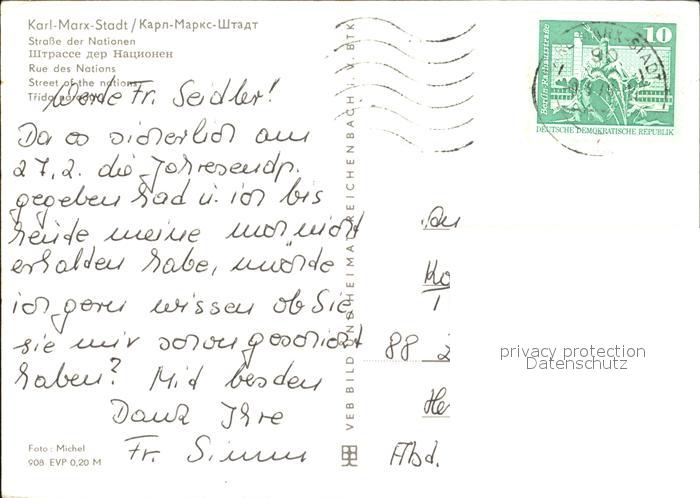 Karl-Marx-Stadt / Карл-Маркс-Штадт
Straße der Nationen
Штрассе дер Национен
Rue des Nations
Street of the nations
Třída národů
Werde Fr. Seidler!
Da es sicherlich am
27.2. die Jahresendp.
gegeben had u. ich bis
heute meine nur nicht
erhalten habe, würde
ich gern wissen ob Sie
sie mir schon geschickt
haben? Mit besten
Dank Ihre
Fr. Simm
Foto: Michel
908 EVP 0,20 M
VEB BILD UND HEIMAT REICHENBACH I. V. BTK
Berlin·Rathausstraße
10
DEUTSCHE DEMOKRATISCHE REPUBLIK
KARL-MARX-STADT
90
An
Ko
1
88 2
He
Abd.
privacy protection
Datenschutz